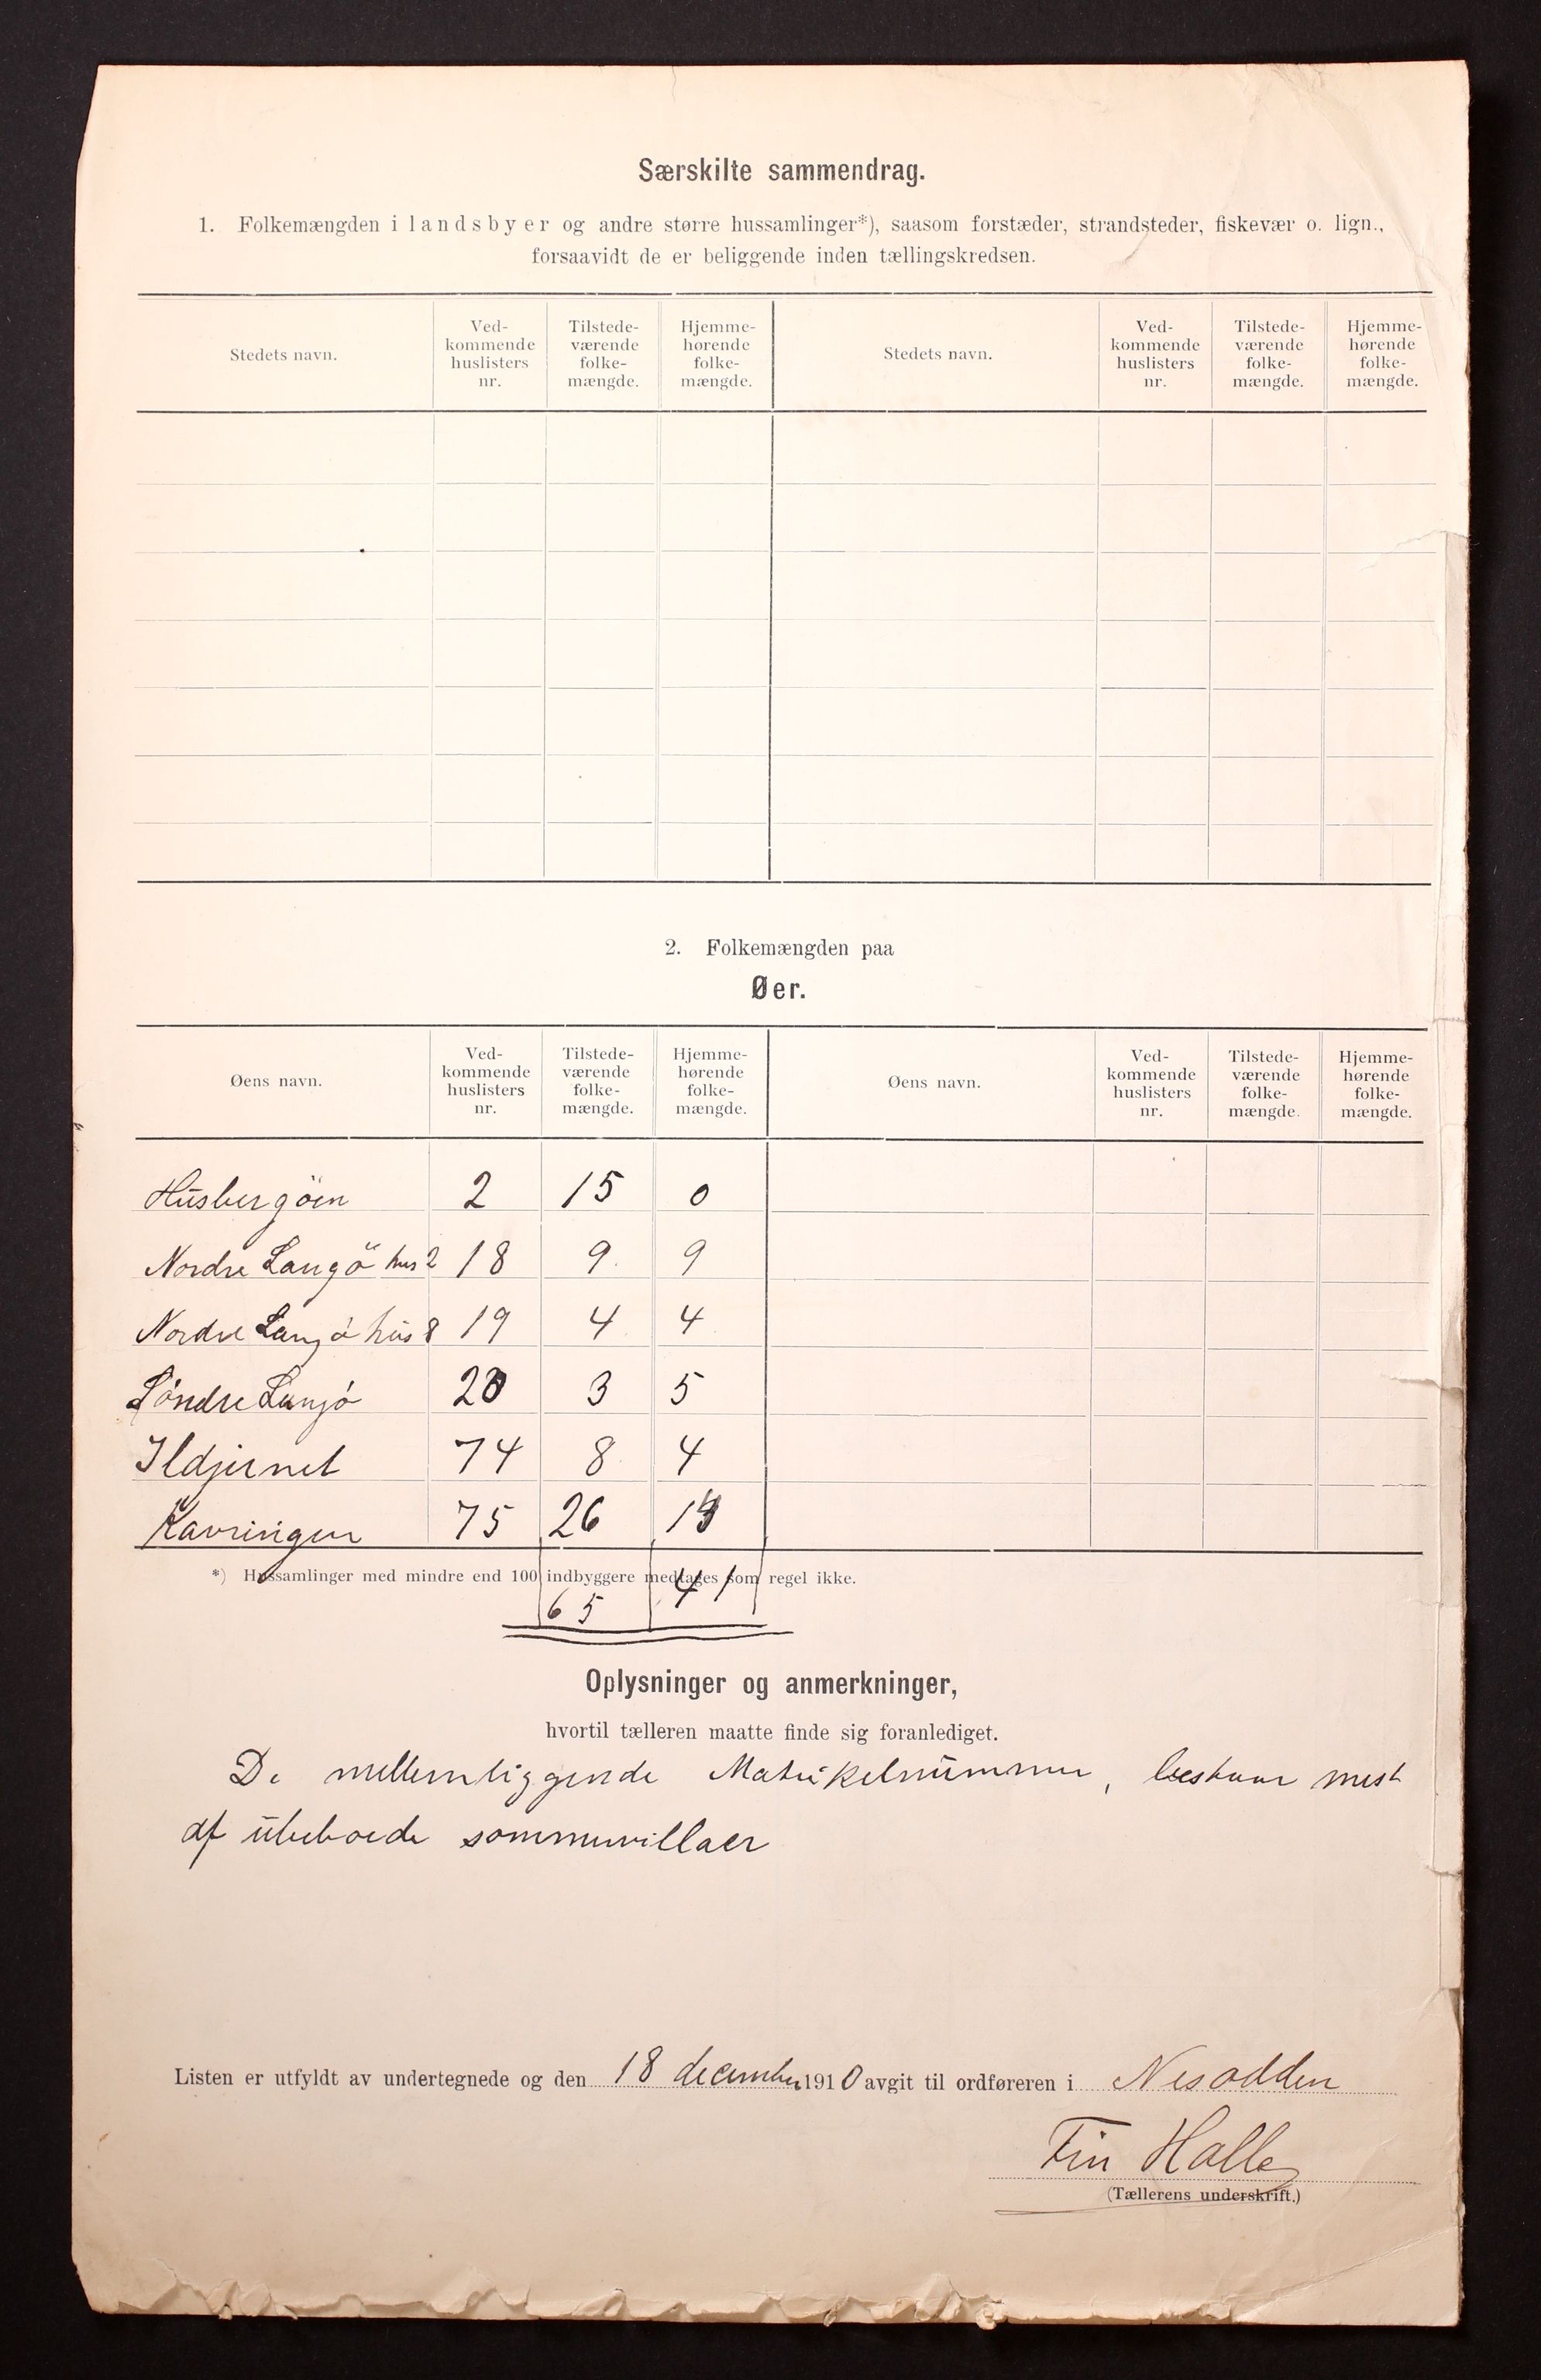 Særskilte sammendrag.
1. Folkemængden i landsbyer og andre større hussamlinger*), saasom forstæder, strandsteder, fiskevær o. lign.,
forsaavidt de er beliggende inden tællingskredsen.
Stedets navn. Ved-kommende huslisters nr. Tilstede-værende folke-mængde. Hjemme-hørende folke-mængde. Stedets navn. Ved-kommende huslisters nr. Tilstede-værende folke-mængde. Hjemme-hørende folke-mængde.
2. Folkemængden paa
Øer.
Øens navn. Ved-kommende huslisters nr. Tilstede-værende folke-mængde. Hjemme-hørende folke-mængde. Øens navn. Ved-kommende huslisters nr. Tilstede-værende folke-mængde. Hjemme-hørende folke-mængde.
Husbergöen 2 15 0
Nordre Langö hus 2 18 9 9
Nordre Langö hus 8 19 4 4
Söndre Langö 20 3 5
Ildjernet 74 8 4
Kavringen 75 26
*) Hussamlinger med mindre end 100 indbyggere medtages som regel ikke.
65 41
Oplysninger og anmerkninger,
hvortil tælleren maatte finde sig foranlediget.
De mellemliggende Matrikelnummer, bestaar mest
af ubeboede sommervillaer
Listen er utfyldt av undertegnede og den 18 december 1910 avgit til ordføreren i Nesodden
Fin Halle
(Tællerens underskrift.)